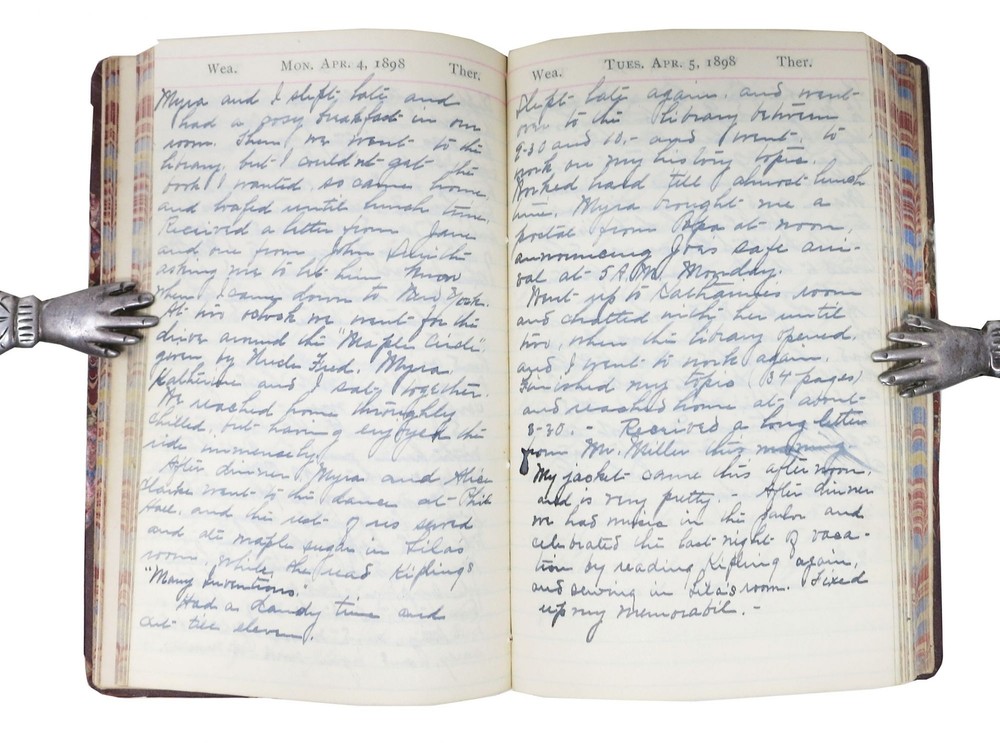 Wea. Mon. Apr. 4, 1898 Ther.
Myra and I slept late and
had a cosy breakfast in our
room. Then we went to the
library but I couldn't get the
book I wanted, so came home
and loafed until lunch time.
Received a letter from Jane
and one from John
asking me to let him know
when I came down to New York.
At two o'clock we went for the
drive around the "Maple Circle",
given by Fred. Myra,
Katherine and I sat together.
We reached home throughly
chilled, but having enjoyed the
ride immensely.
After dinner Myra and Alice
Clarke went to the dance at Phil
Hall, and the rest of us sewed
and ate maple sugar in Lila's
room, while she read Kipling's
"Many Inventions."
Had a dandy time and
till eleven.
Wea. Tues. Apr. 5, 1898 Ther.
Slept late again, and went
over to the library between
9-30 and 10, and went to
work on my history topic.
Worked hard till almost lunch
time. Myra brought me a
postal from Papa at noon,
announcing Joe's safe arri-
val at 5 A.M. Monday.
Went up to Katharine's room
and chatted with her until
two, when the library opened,
and I went to work again.
Finished my topic (34 pages)
and reached home at about
3-30. - Received a long letter
from Mr. Miller this morning
My jacket came this afternoon,
and is very pretty. - After dinner
we had music in the parlor and
celebrated the last night of vaca-
tion by reading Kipling again,
and sewing in Lila's room. Fixed
up my memorabil. -